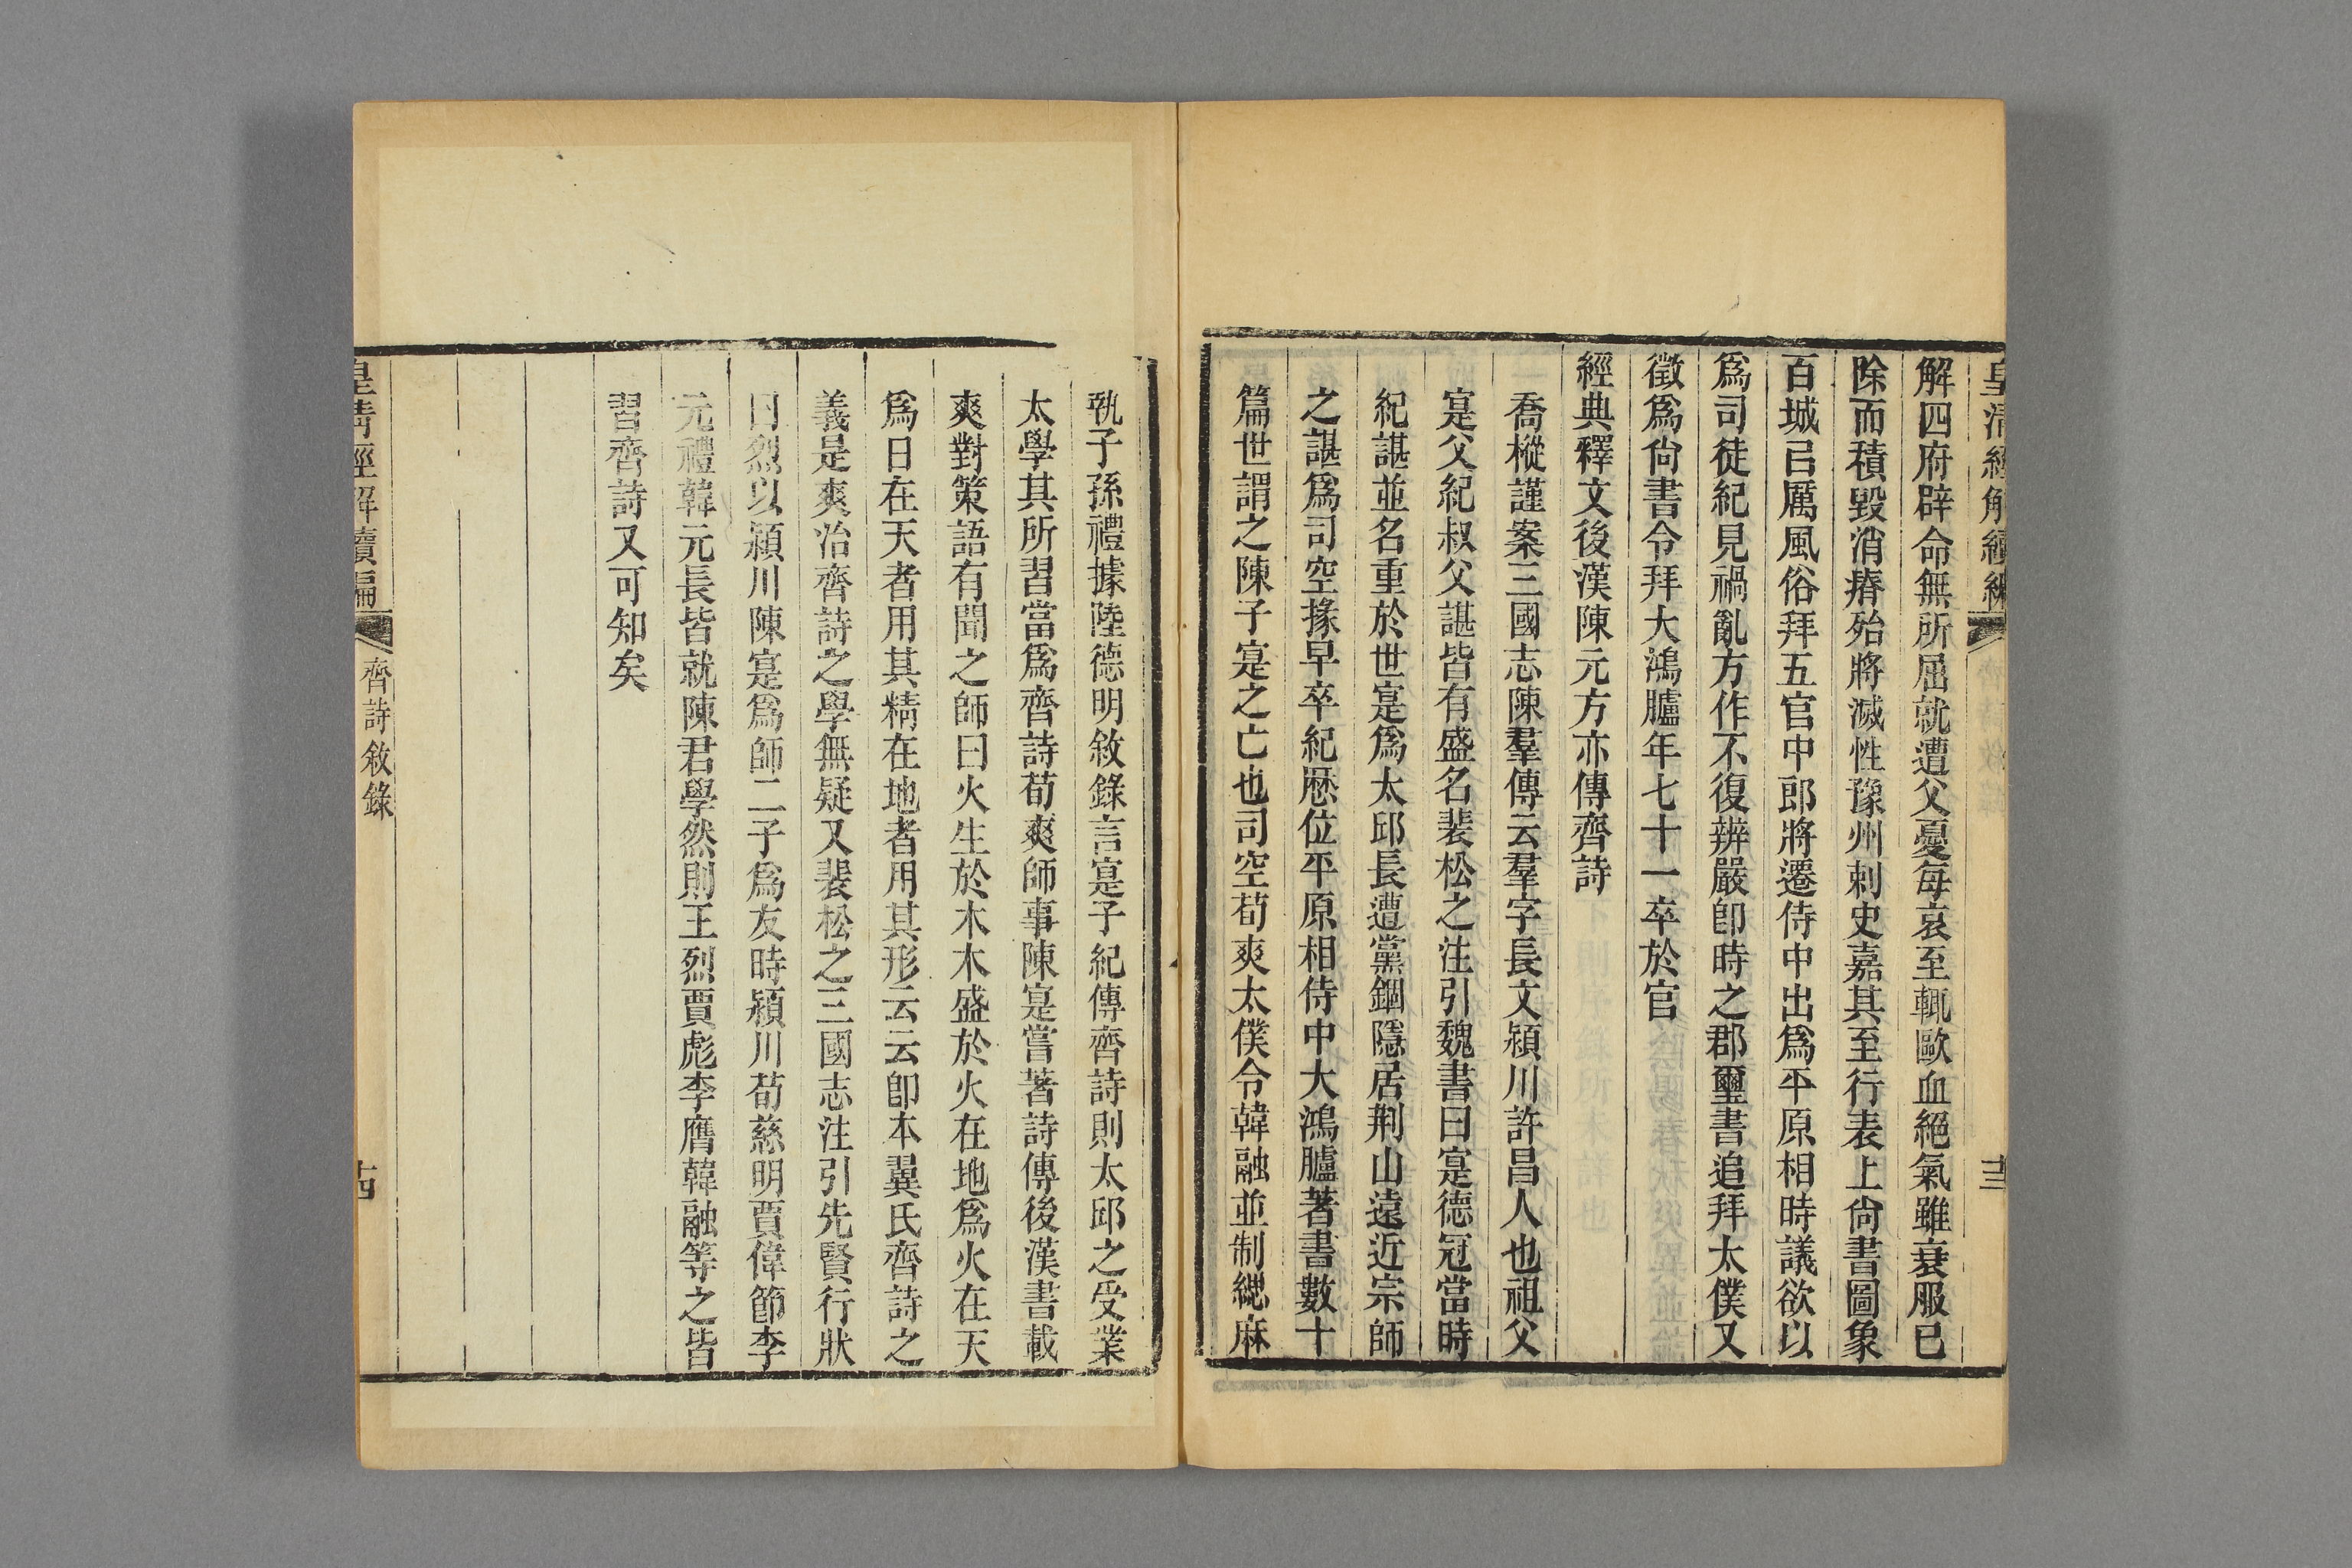 皇清經解續編
十三
解四府辟命無所屈就遭父憂每哀至輒歐血絕氣雖衰服已
除而積毀消瘠殆將滅性豫州刺史嘉其至行表上尙書圖象
百城㠯厲風俗拜五官中郎將遷侍中出爲平原相時議欲以
爲司徒紀見禍亂方作不復辨嚴卽時之郡璽書追拜太僕又
徵爲尙書令拜大鴻臚年七十一卒於官
經典釋文後漢陳元方亦傳齊詩
喬樅謹案三國志陳羣傳云羣字長文潁川許昌人也祖父
寔父紀叔父諶皆有盛名裴松之注引魏書曰寔德冠當時
紀諶並名重於世寔爲太邱長遭黨錮隱居荆山遠近宗師
之諶爲司空掾早卒紀歷位平原相侍中大鴻臚著書數十
篇世謂之陳子寔之亡也司空荀爽太僕令韓融並制緦麻
執子孫禮據陸德明敘錄言寔子紀傳齊詩則太邱之受業
太學其所習當爲齊詩荀爽師事陳寔嘗著詩傳後漢書載
爽對策語有聞之師曰火生於木木盛於火在地爲火在天
爲日在天者用其精在地者用其形云云卽本翼氏齊詩之
義是爽治齊詩之學無疑又裴松之三國志注引先賢行狀
曰烈以潁川陳寔爲師二子爲友時潁川荀慈明賈偉節李
元禮韓元長皆就陳君學然則王烈賈彪李膺韓融等之皆
習齊詩又可知矣
皇清經解續編
齊詩敘錄
十四